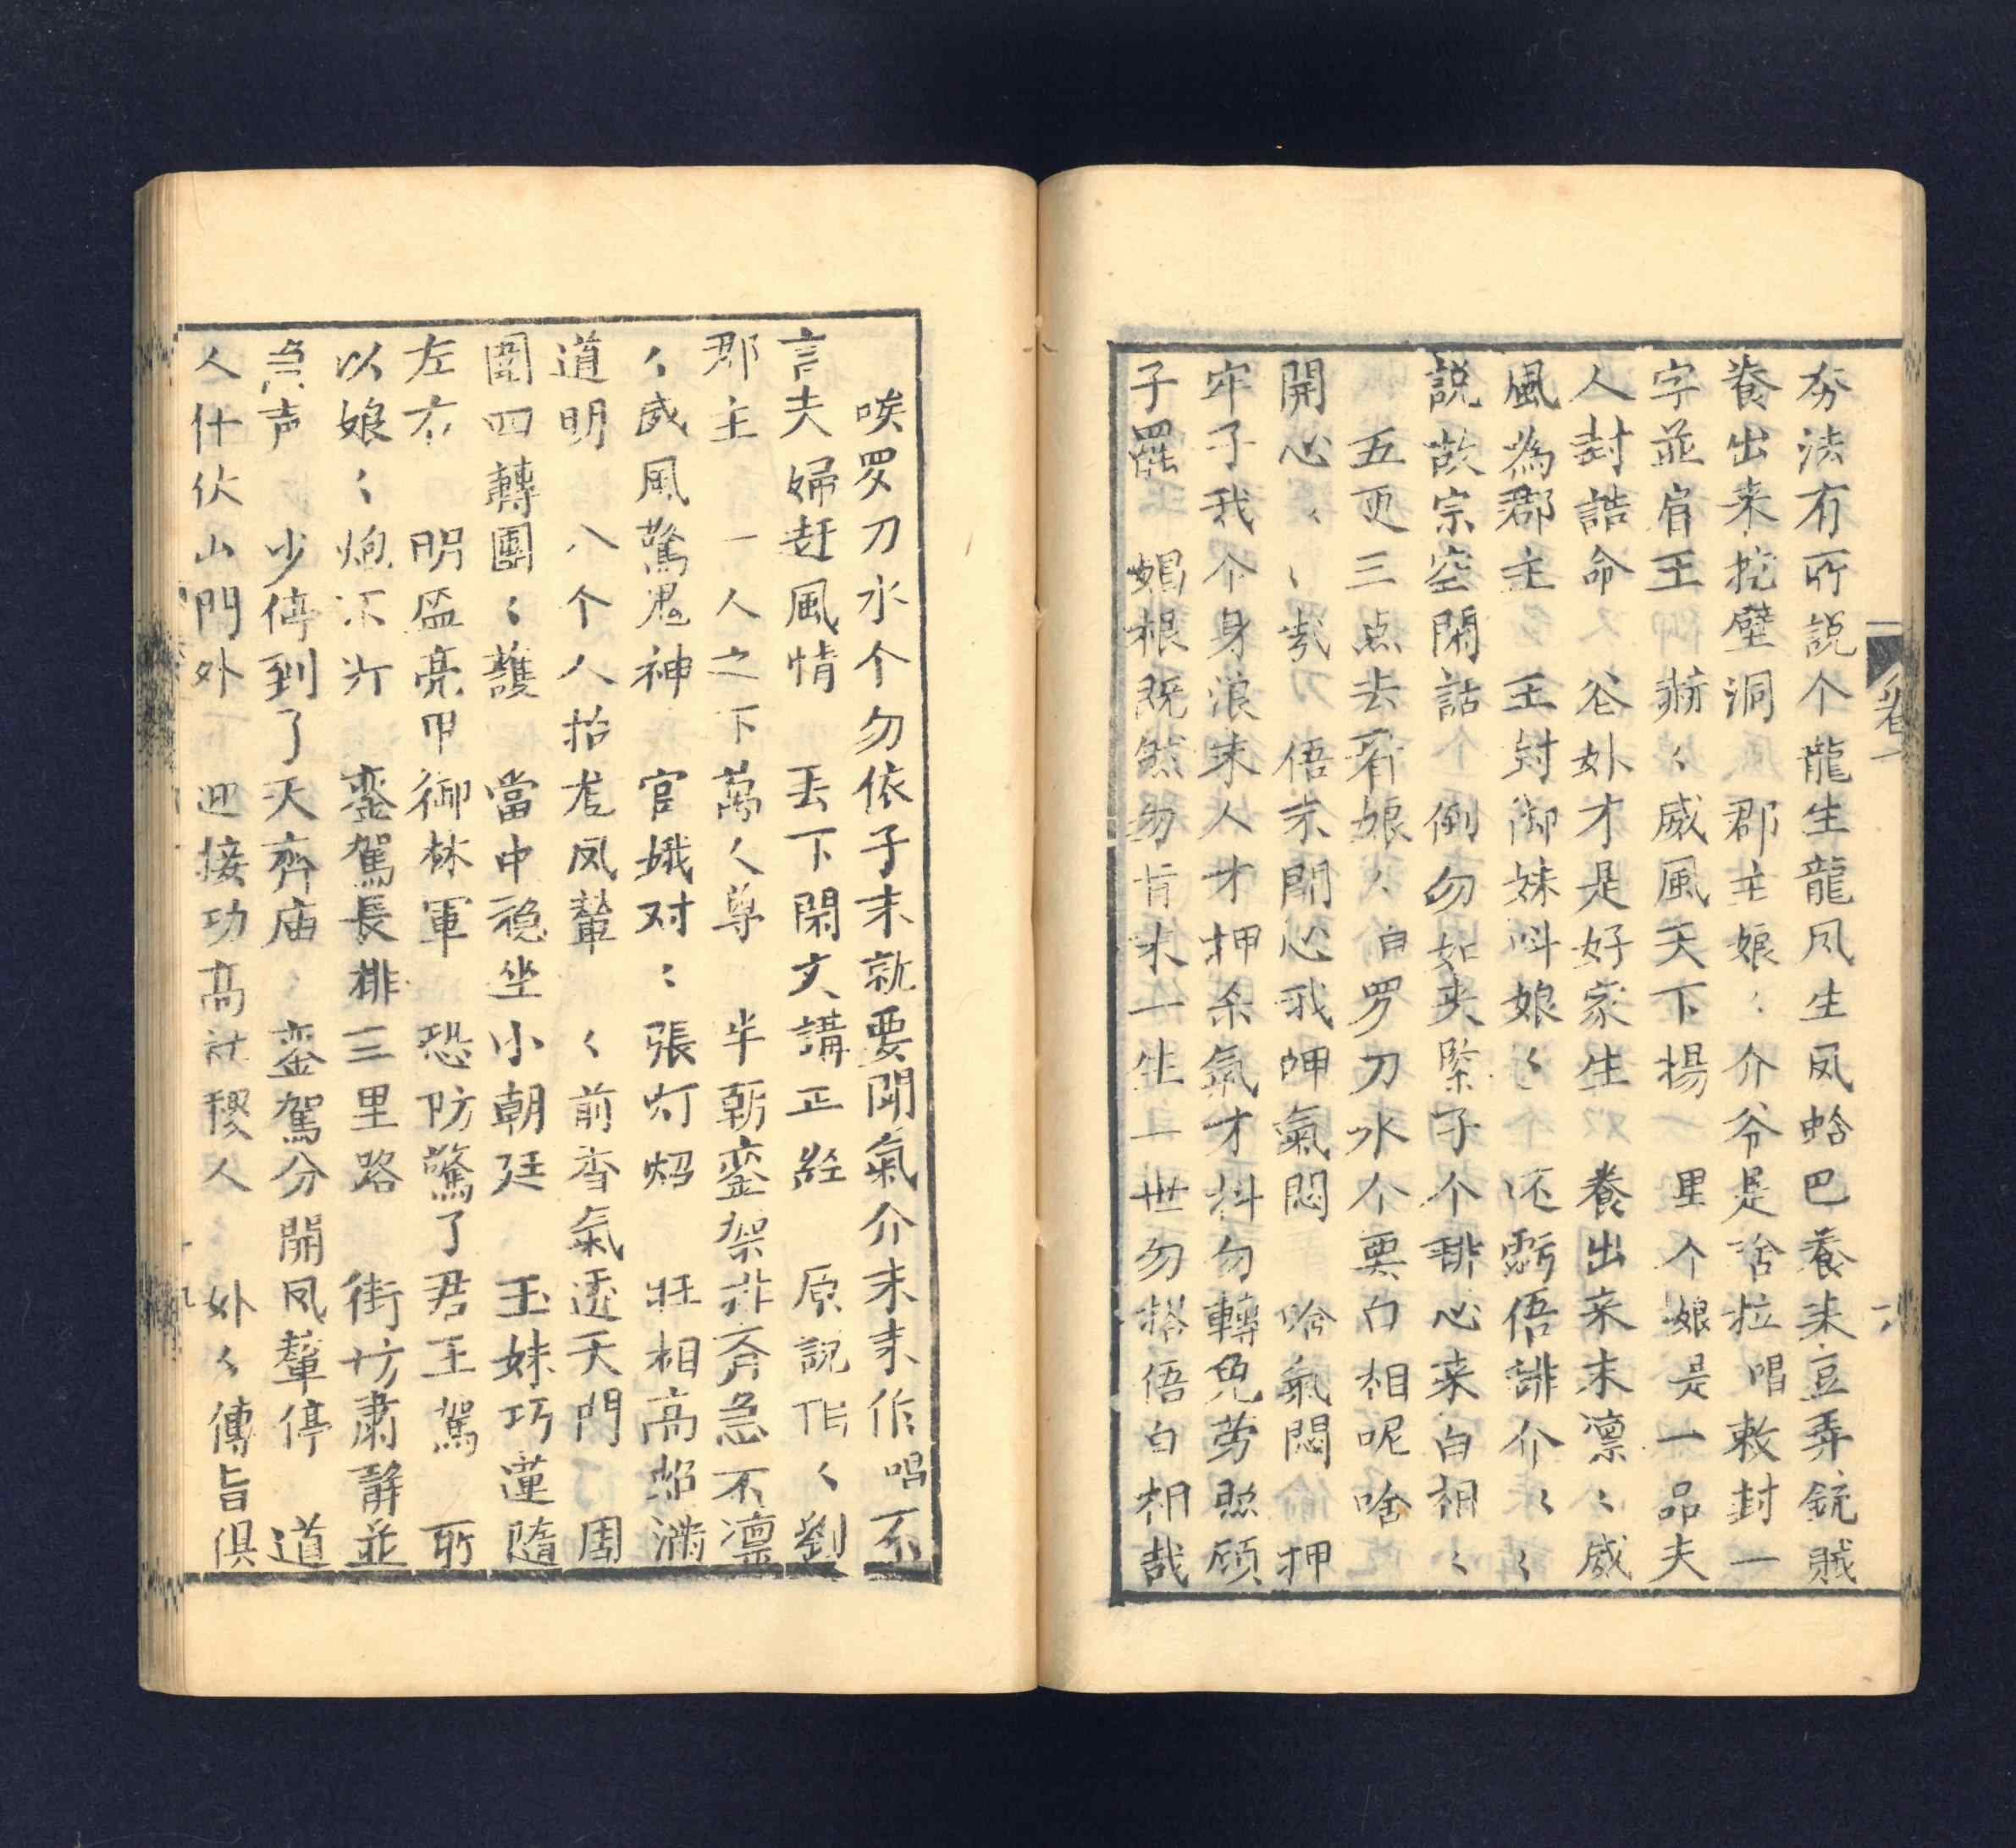 夯法有所説个龍生龍鳳生鳳蛤巴養来豆弄銃賊
養出来挖壁洞 郡主娘〻介爷是啥拉唱敕封一
字並肩王 〻威風天下揚 里个娘是一品夫
人封誥命 外才是好家生 養出来末凛〻威
風為郡主 王封御妹呌娘〻 还虧悟誹介〻〻
説故宗空閑話 倒勿如夹緊子个誹心来白相〻
五更三点去看娘〻 白罗刀水个要白相呢啥
開心〻〻 悟末開心我呷氣悶 啥氣悶 押
牢子我个身浪来人才押朵氣才抖勿轉免劳照顾
子罷 娼根既然勿肯末一生一世勿搭悟白相哉
卷一
六
唉罗刀水个勿依子末就要閗氣介末末作唱不
言夫婦赶風情 丢下閑文講正經 原説 〻劉
郡主 一人之下萬人尊 半朝鑾架非斉急不凛
〻威風驚鬼神 官娥对〻張灯炤 旺相高炤满
道明 八个人抬龙凤輦 〻前香氣透天門 周
圍四轉團〻護 當中稳坐小朝廷 玉妹巧蓮隨
左右 明盔亮甲御林軍 恐防驚了君王駕 所
以娘〻炮不放 鑾駕長排三里路 街坊肅静並
無声 少停到了天齊庙 鑾駕分開凤輦停 道
人什伙山門外 迎接功高社稷人 外〻傳旨俱